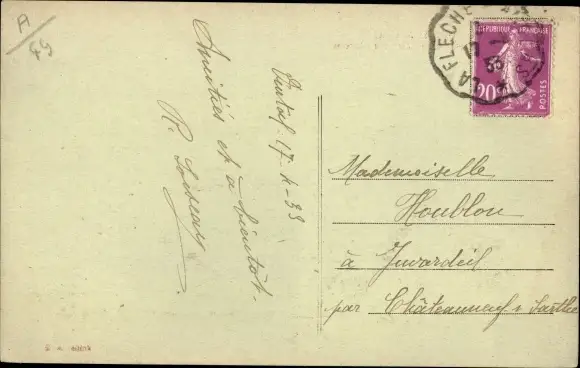 A
49
Amitiés et à bientôt.
R. Loiseau
LA FLECHE
17
RÉPUBLIQUE FRANÇAISE
20c
POSTES
Mademoiselle
Houblon
à Juvardeil
par Châteauneuf s Sarthe